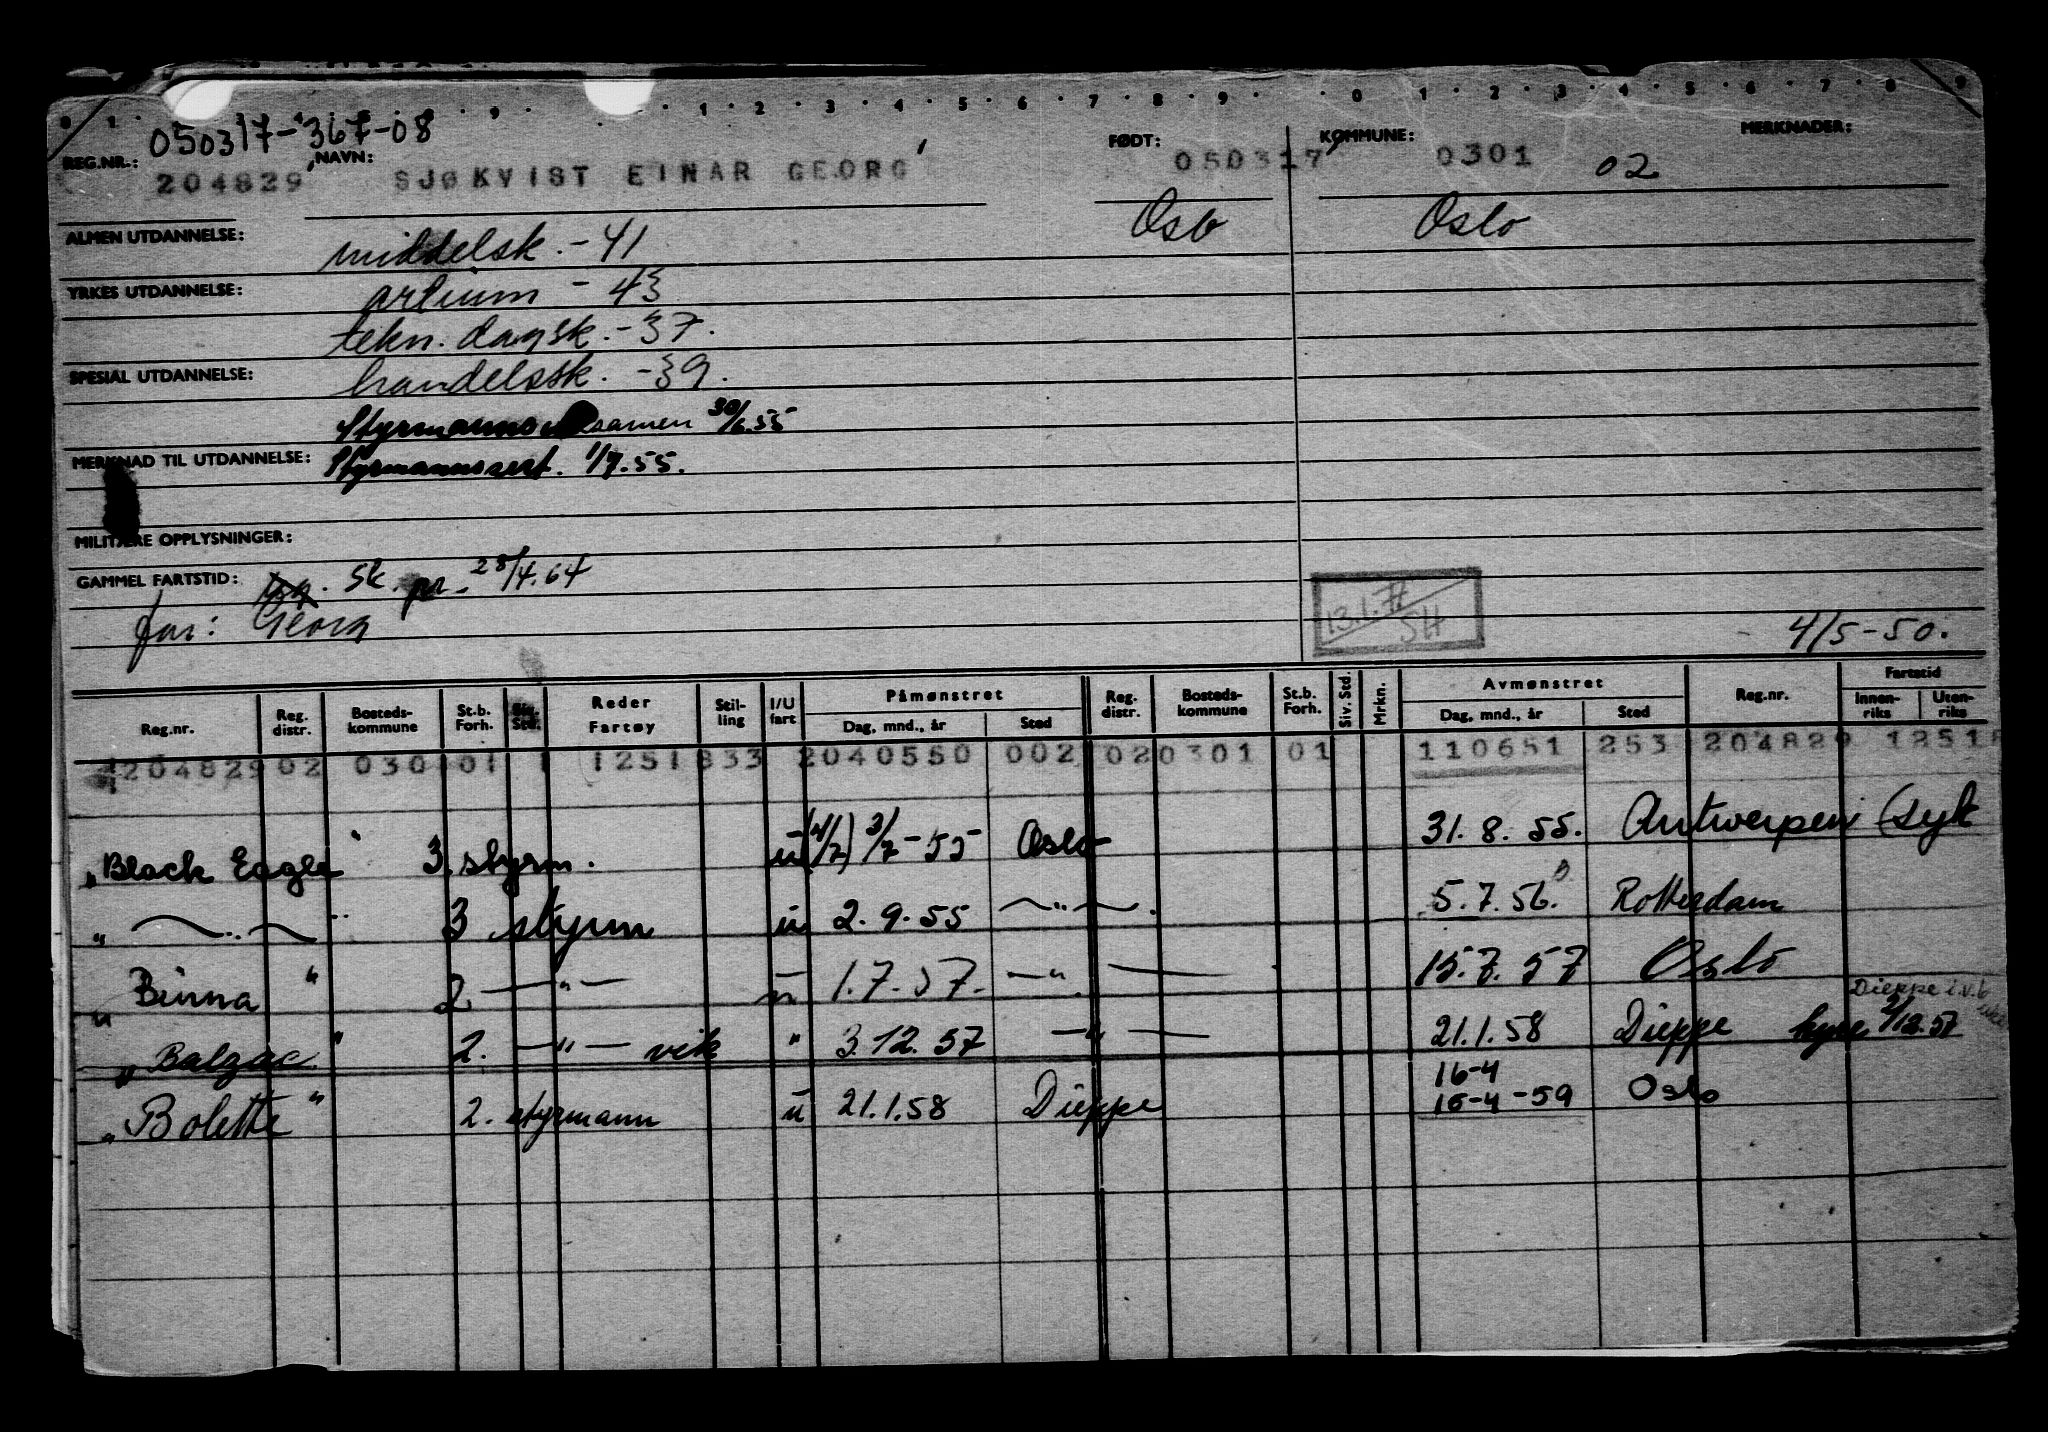 0 1 9 1 2 3 4 5 6 7 8 9 0 1 2 3 4 5 6 7 8 9
050317-367-08
REG.NR.: 204829 NAVN: SJØKVIST EINAR GEORG FØDT: 050317 KOMMUNE: 0301 02 MERKNADER:
Oslo Oslo
ALMEN UTDANNELSE: middelsk. - 41
YRKES UTDANNELSE: artium - 43
tekn. dagsk. - 37.
SPESIAL UTDANNELSE: handelssk. - 39.
Styrmannseksamen 30/6.55
MERKNAD TIL UTDANNELSE: Styrmannssert. 1/7.55.
MILITÆRE OPPLYSNINGER:
GAMMEL FARTSTID: Sk. pr. 28/4.64
far: Georg
13.1.71 SH
4/5-50.
Reg.nr. Reg. distr. Bosteds-kommune St.b. Forh. Siv. Std. Reder Fartøy Stil-ling I/U fart Påmønstret Dag, mnd., år Sted Reg. distr. Bosteds-kommune St.b. Forh. Siv. Std. Mrkn. Avmønstret Dag, mnd., år Sted Reg.nr. Fartstid Innen-riks Uten-riks
204829 02 0301 01 1 1251 833 2 040550 002 02 0301 01 110651 253 204829 1251
"Black Eagle" 3 styrm. u (4/7) 3/7-55 Oslo 31.8.55. Antwerpen (syk
" — " — " 3 styrm u 2.9.55 — " —. 5.7.56. Rotterdam
"Binna" 2. — " — u 1.7.57. — " — 15.7.57 Oslo
Dieppe i.v.b
"Balzac" 2. — " — vik " 3.12.57 — " — 21.1.58 Dieppe hyre 2/12.57
16-4
"Bolette" 2. styrmann u 21.1.58 Dieppe 15-4-59 Oslo